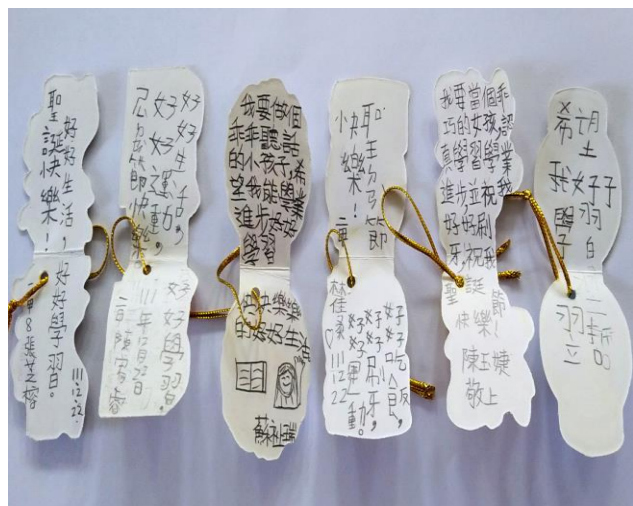 好好生活，
聖誕快樂！
好好學習。
111.12.22.
張芝榕
好好生活，
好好運動，
快樂
好好學習。
111年12月22日
我要做個
乖乖聽話
的小孩子,希
望我能學業
進步好好
學習
快快樂樂
的好好生活
節
快樂！
好好吃飯，
好好刷牙，
好好運動。
111 12 22
林佳柔
我要當個乖
巧的女孩認
真學習學業
進步並祝我
好好刷
牙祝我
聖誕節!
快樂!
陳玉婕
敬上
希望
我好好
學習